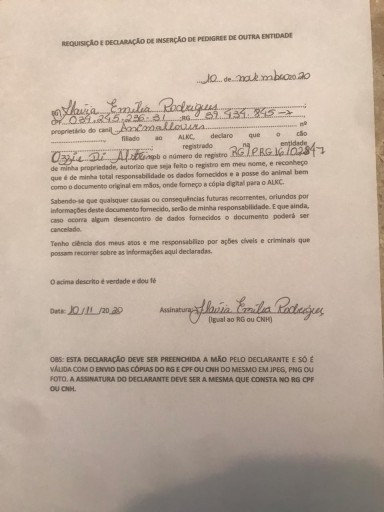 REQUISIÇÃO E DECLARAÇÃO DE INSERÇÃO DE PEDIGREE DE OUTRA ENTIDADE
10 de novembro 2020
Eu Flávia Emília Rodrigues
CPF 034.245.236-31 RG 39.434.845-
proprietário do canil nº
, filiado ao ALKC, declaro que o cão
registrado na entidade
Ozzie Di sob o número de registro RG/PRG/16/02847
de minha propriedade, autorizo que seja feito o registro em meu nome, e reconheço
que é de minha total responsabilidade os dados fornecidos e a posse do animal bem
como o documento original em mãos, onde forneço a cópia digital para o ALKC.
Sabendo-se que quaisquer causas ou consequências futuras recorrentes, oriundos por
informações deste documento fornecido, serão de minha responsabilidade. E que ainda,
caso ocorra algum desencontro de dados fornecidos o documento poderá ser
cancelado.
Tenho ciência dos meus atos e me responsabilizo por ações cíveis e criminais que
possam recorrer sobre as informações aqui declaradas.
O acima descrito é verdade e dou fé
Data: 10/11/2020 Assinatura: Flávia Emília Rodrigues
(Igual ao RG ou CNH)
OBS: ESTA DECLARAÇÃO DEVE SER PREENCHIDA A MÃO PELO DECLARANTE E SÓ É
VÁLIDA COM O ENVIO DAS CÓPIAS DO RG E CPF OU CNH DO MESMO EM JPEG, PNG OU
FOTO. A ASSINATURA DO DECLARANTE DEVE SER A MESMA QUE CONSTA NO RG CPF
OU CNH.